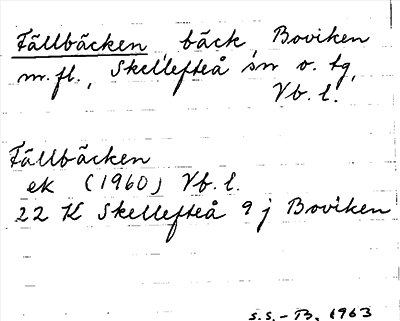 Fällbäcken, bäck, Boviken
m.fl., Skellefteå sn o. tg,
Vb. l.
Fällbäcken
ek (1960) Vb. l.
22 K Skellefteå 9 j Boviken
S.S.-B, 1963